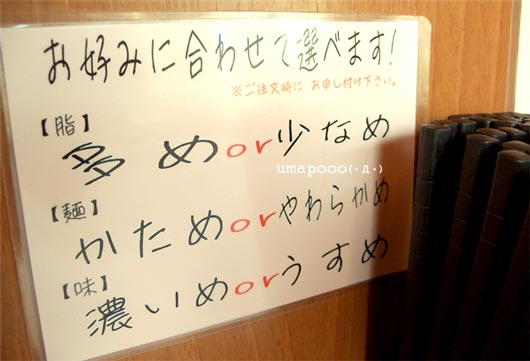 お好みに合わせて選べます!
※ご注文時に お申し付け下さい。
【脂】
多めor少なめ
umapooo(・д・)
【麺】
かためorやわらかめ
【味】
濃いめorうすめ